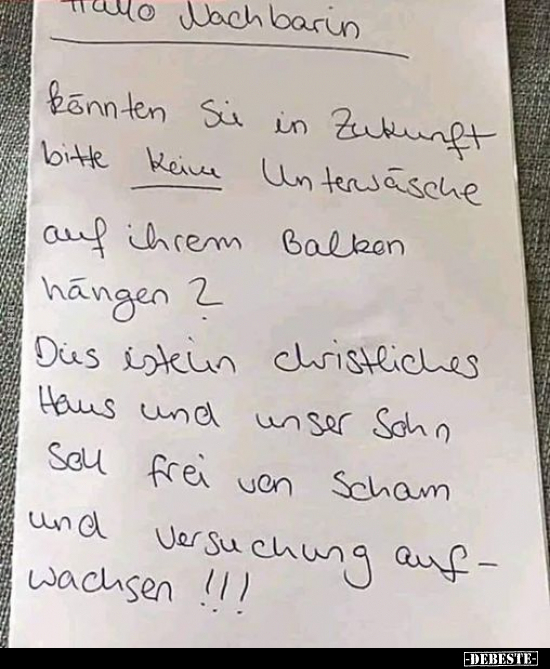 Hallo Nachbarin
könnten Sie in Zukunft
bitte keine Unterwäsche
auf ihrem Balkon
hängen ?
Dies ist ein christliches
Haus und unser Sohn
soll frei von Scham
und Versuchung auf-
wachsen !!!
-DEBESTE-